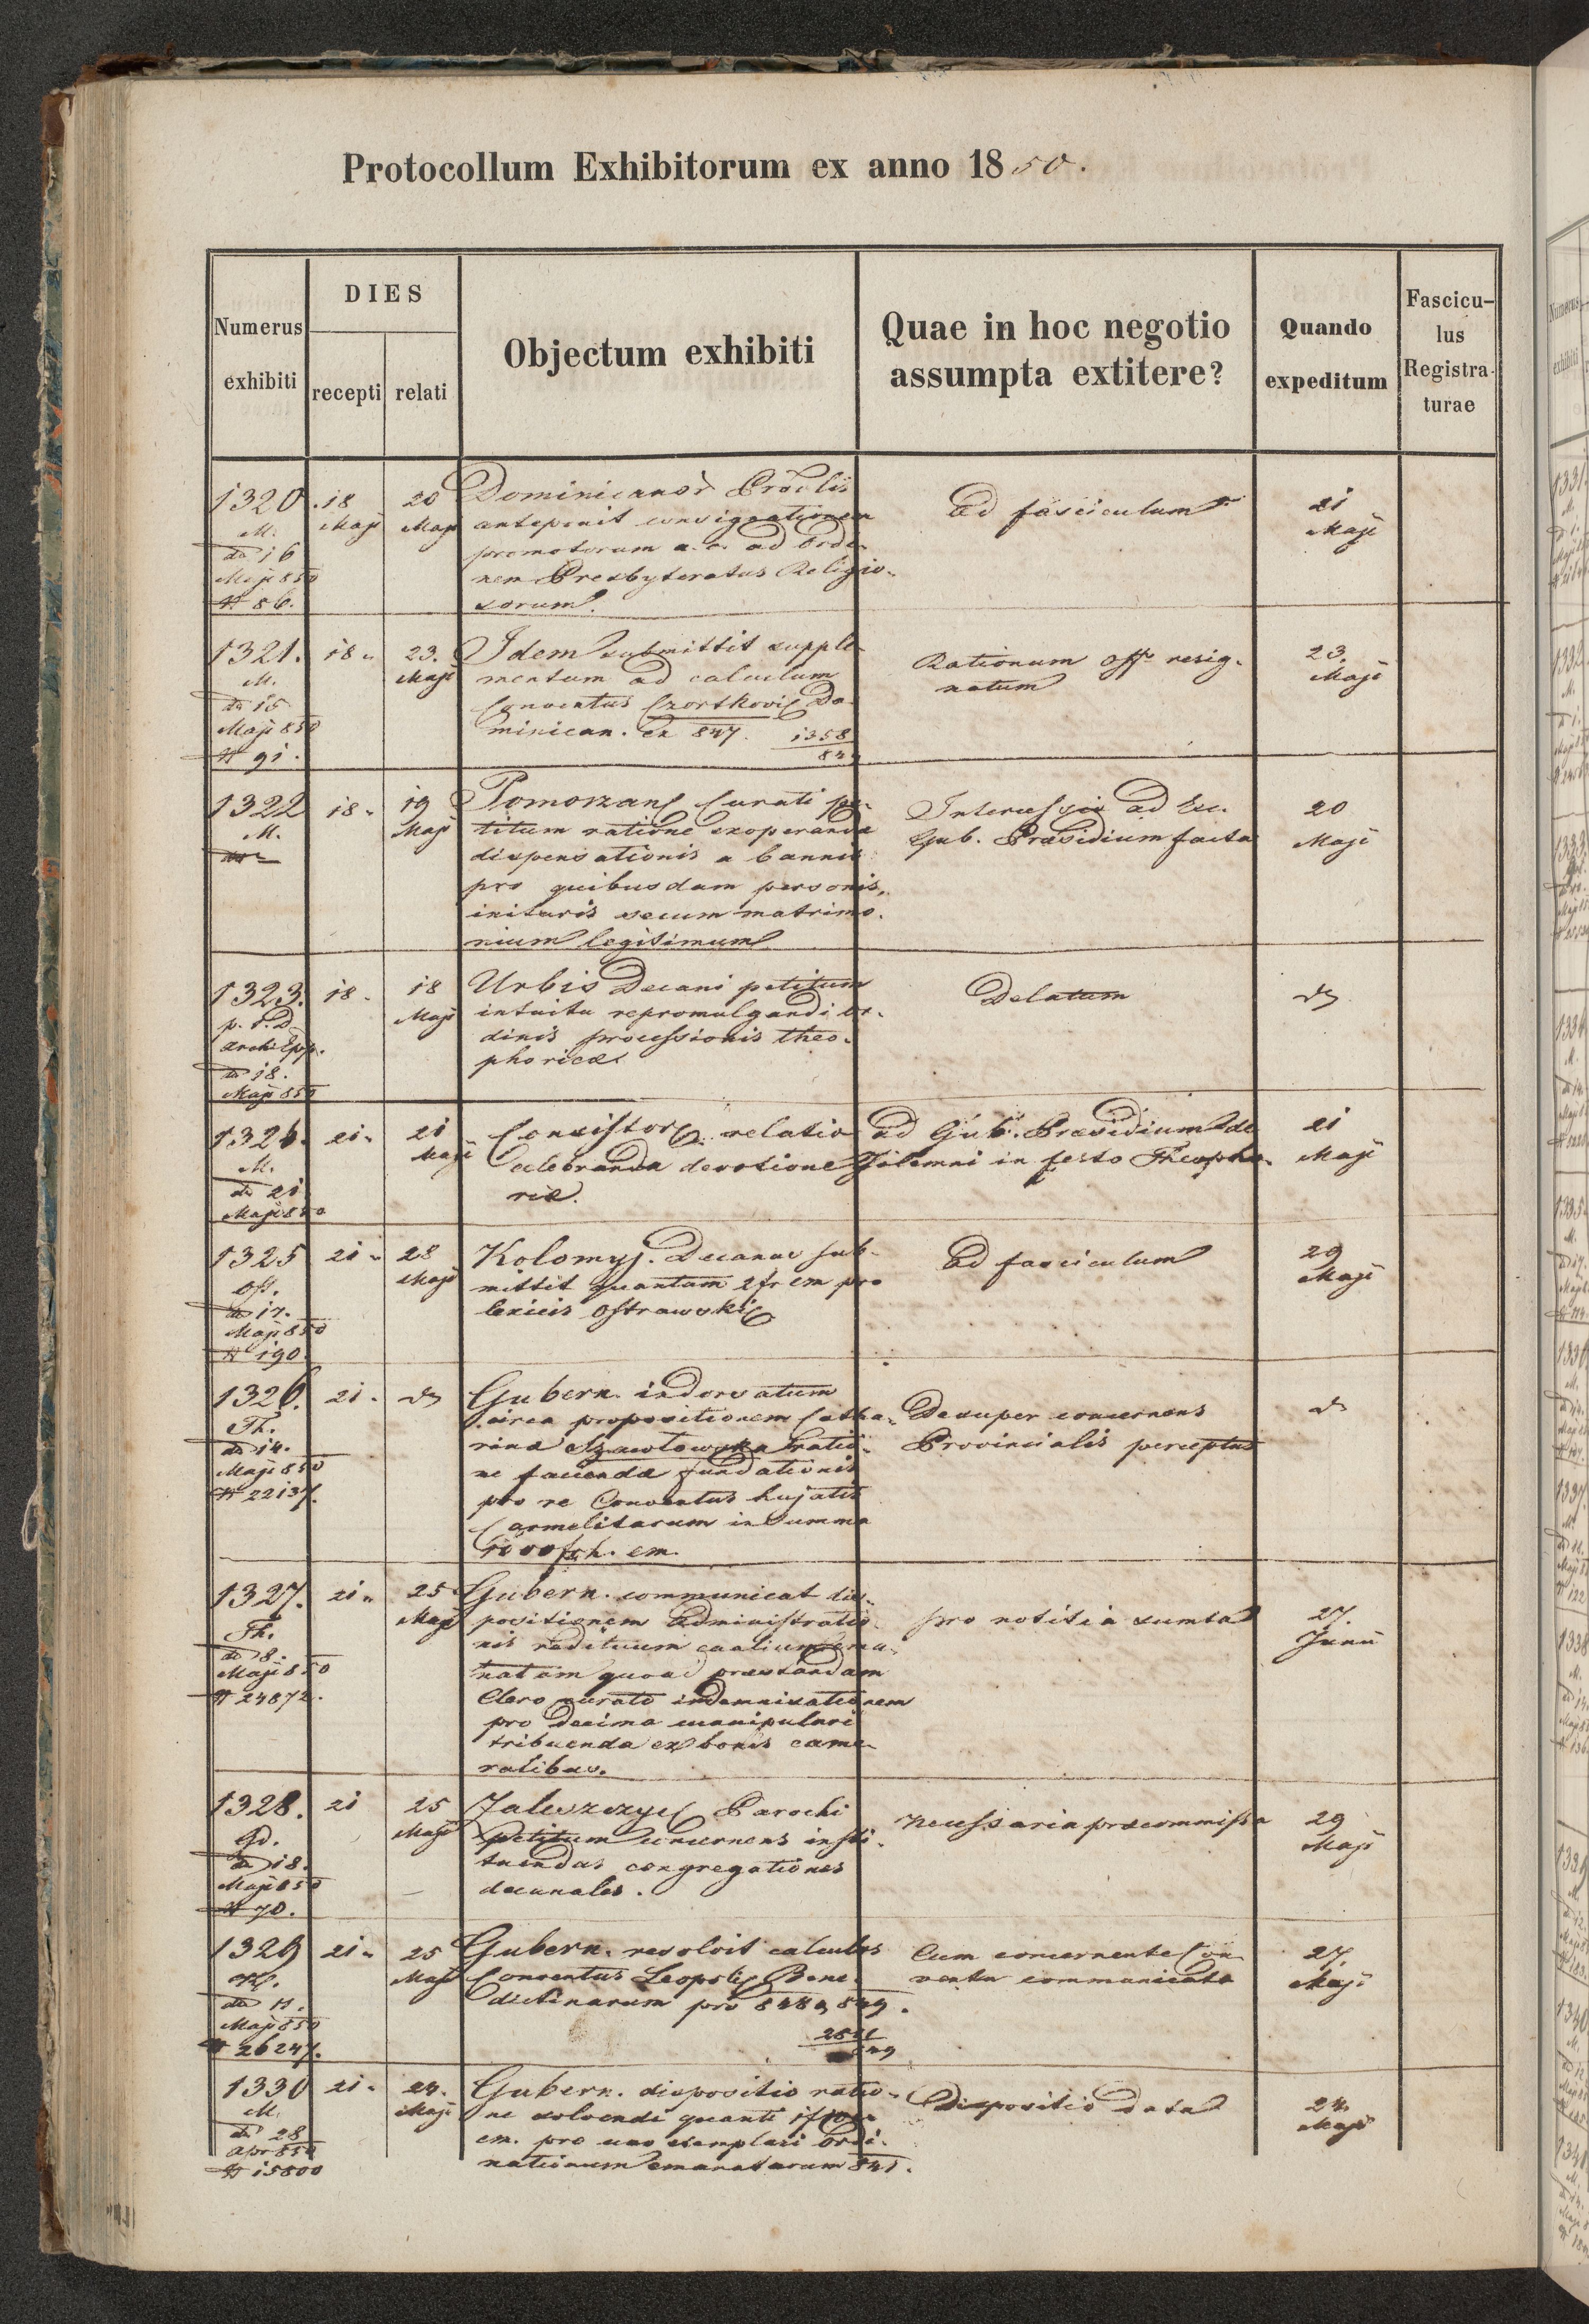 Protocollum Exhibitorum ex anno 1850.
Numerus exhibiti
DIES
recepti
relati
Objectum exhibiti
Quae in hoc negotio assumpta extitere?
Quando expeditum
Fascicu-
lus
Registra-
turae
1320
M.
dto 16
Maji 850
# 86.
18
Maji
20
Maji
Dominicanor
anteponit consignationem
promotorum a. c. ad Ordi-
nem Presbyteratus Religio-
sorum.
Ad fasciculum
21
Maji
1321.
M.
dto 15
Maji 850
# 91.
18 "
23.
Maji
Idem submittit supple-
mentum ad calculum
Conventus Czortkovi Do-
minican. ex 847. 1358
Rationum off resig-
natum
23.
Maji
1322
M.
18 "
19
Maji
Pomorzan Curati pe-
titum ratione exoperandæ
dispensationis a bannis
pro quibusdam personis,
inituris secum matrimo-
nium legitimum
Intercessio ad Exc.
Gub. Præsidium facta
20
Maji
1323.
archiEpp.
dto 18.
Maji 850
18 "
18
Maji
Urbis Decani petitum
intuitu repromulgandi or-
dinis processionis theo-
phoricæ
Delatum
1324.
M.
dto 21
Maji 850
21 "
21
Maji
Consistor relatio ad Gub. Præsidium de
celebranda devotione solemni in festo Theopho-
riæ.
21
Maji
1325
Off.
dto 17.
Maji 850
# 190.
21 "
28
Maji
Kolomyj. Decanus sub-
mittit quantum 2 fr cm pro
lexicis Ostrawski
Ad fasciculum
29
Maji
1326.
Th.
dto 14.
Maji 850
# 22137.
21 "
Gubern. indorsatum
circa propositionem Catha-
rinæ ratio-
ne faciendæ fundationis
pro re Conventus hujatis
Carmelitarum in summa
cm.
Desuper concernens
Provincialis perceptus
1327.
Th.
dto 8.
Maji 850
# 24872.
21 "
25
Maji
Gubern. communicat dis-
positionem Administratio-
nis redituum ema-
natam quoad præstandam
Clero curato indemnisationem
pro decima manipulari
tribuenda ex bonis came-
ralibus.
pro notitia sumta
27.
Junii
1328.
dto 18.
Maji 850
# 70.
21
25
Maji
Zaleszczyc Parochi
petitum concernens insti-
tuendas congregationes
decanales.
Necessaria præcommissa
29
Maji
1329
dto 11.
Maji 850
# 26247.
21 "
25
Maji
Gubern. resolvit calculos
Conventus Leopoli Bene-
dictinarum pro 848 & 849.
Cum concernente Con-
ventu communicata
27.
Maji
1330
M.
dto 28
Apr 850
# 15800
21 "
Maji
Gubern. dispositio ratio-
ne solvendi quanti
cm. pro uno exemplari Ordi-
nationum emanatarum 841.
Dispositio data
24.
Maji